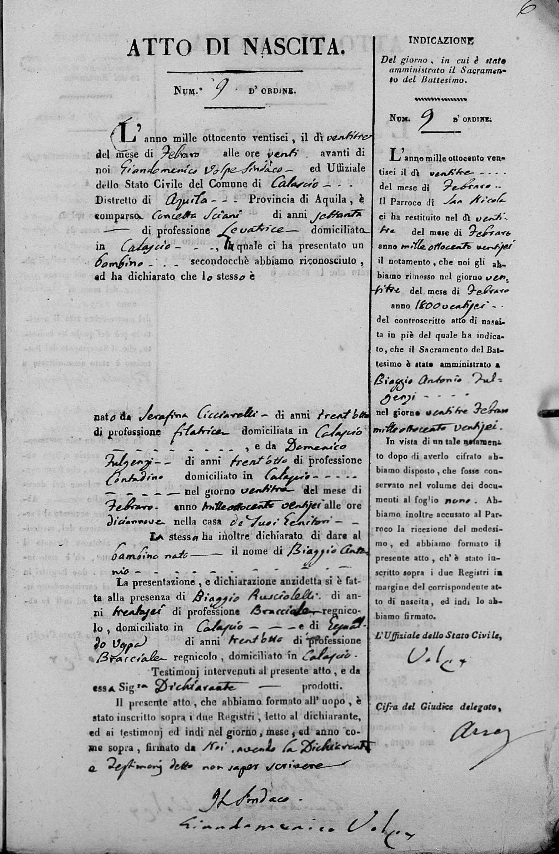 6
ATTO DI NASCITA.
NUM.° 9 D'ORDINE.
L'anno mille ottocento ventisei, il dì ventitre
del mese di Febraro alle ore venti avanti di
noi Giandomenico Volpe Sindaco ed Uffiziale
dello Stato Civile del Comune di Calascio - - -
Distretto di Aquila - - - Provincia di Aquila, è
comparsa Concetta Sciani di anni settanta
— di professione Levatrice domiciliata
in Calascio - - ., la quale ci ha presentato un
bambino - - - secondocchè abbiamo riconosciuto,
ed ha dichiarato che lo stesso è
nato da Serafina Cicciarelli - di anni trent'otto
di professione filatrice domiciliata in Calascio
- - - - - , e da Domenico
Fulgenzi - - di anni trent'otto di professione
Contadino domiciliato in Calascio - - - - -
- - - - - nel giorno ventitre del mese di
Febraro anno mille ottocento ventisei alle ore
dicianove nella casa de suoi Genitori - -
La stessa ha inoltre dichiarato di dare al
bambino nato — il nome di Biaggio Anto
nio - - - - - - -
La presentazione, e dichiarazione anzidetta si è fat-
ta alla presenza di Biaggio Rusciolelli di an-
ni trentasei di professione Bracciale regnico-
lo, domiciliato in Calascio - - - e di
do di anni trent'otto di professione
Bracciale regnicolo, domiciliato in Calascio.
Testimonj intervenuti al presente atto, e da
essa Sig.ra Dichiarante — prodotti.
Il presente atto, che abbiamo formato all'uopo, è
stato inscritto sopra i due Registri, letto al dichiarante,
ed ai testimonj ed indi nel giorno, mese, ed anno co-
me sopra, firmato da Noi, avendo la Dichiarante
e Testimonj detto non saper scrivere
Il Sindaco
Giandomenico Volpe
INDICAZIONE
Del giorno, in cui è stato
amministrato il Sacramen-
to del Battesimo.
NUM. 9 D'ORDINE.
L'anno mille ottocento ven-
tisei il dì ventitre - - - -
del mese di Febraro - -
Il Parroco di San Nicola
ci ha restituito nel dì venti
tre del mese di Febraro
anno mille ottocento ventisei
il notamento, che noi gli ab-
biamo rimesso nel giorno ven-
titre del mese di Febraro
anno 1800 ventisei - -
del controscritto atto di nasci-
ta in piè del quale ha indica-
to, che il Sacramento del Bat-
tesimo è stato amministrato a
Biaggio Antonio Ful-
genzi - - - -
nel giorno ventitre Febraro
mille ottocento ventisei.
In vista di un tale notamento
dopo di averlo cifrato ab-
biamo disposto, che fosse con-
servato nel volume dei docu-
menti al foglio nono. Ab-
biamo inoltre accusato al Parro-
co la ricezione del medesi-
mo, ed abbiamo formato il
presente atto, ch'è stato in-
scritto sopra i due Registri in
margine del corrispondente at-
to di nascita, ed indi lo ab-
biamo firmato.
L'Uffiziale dello Stato Civile,
Volpe
Cifra del Giudice delegato,